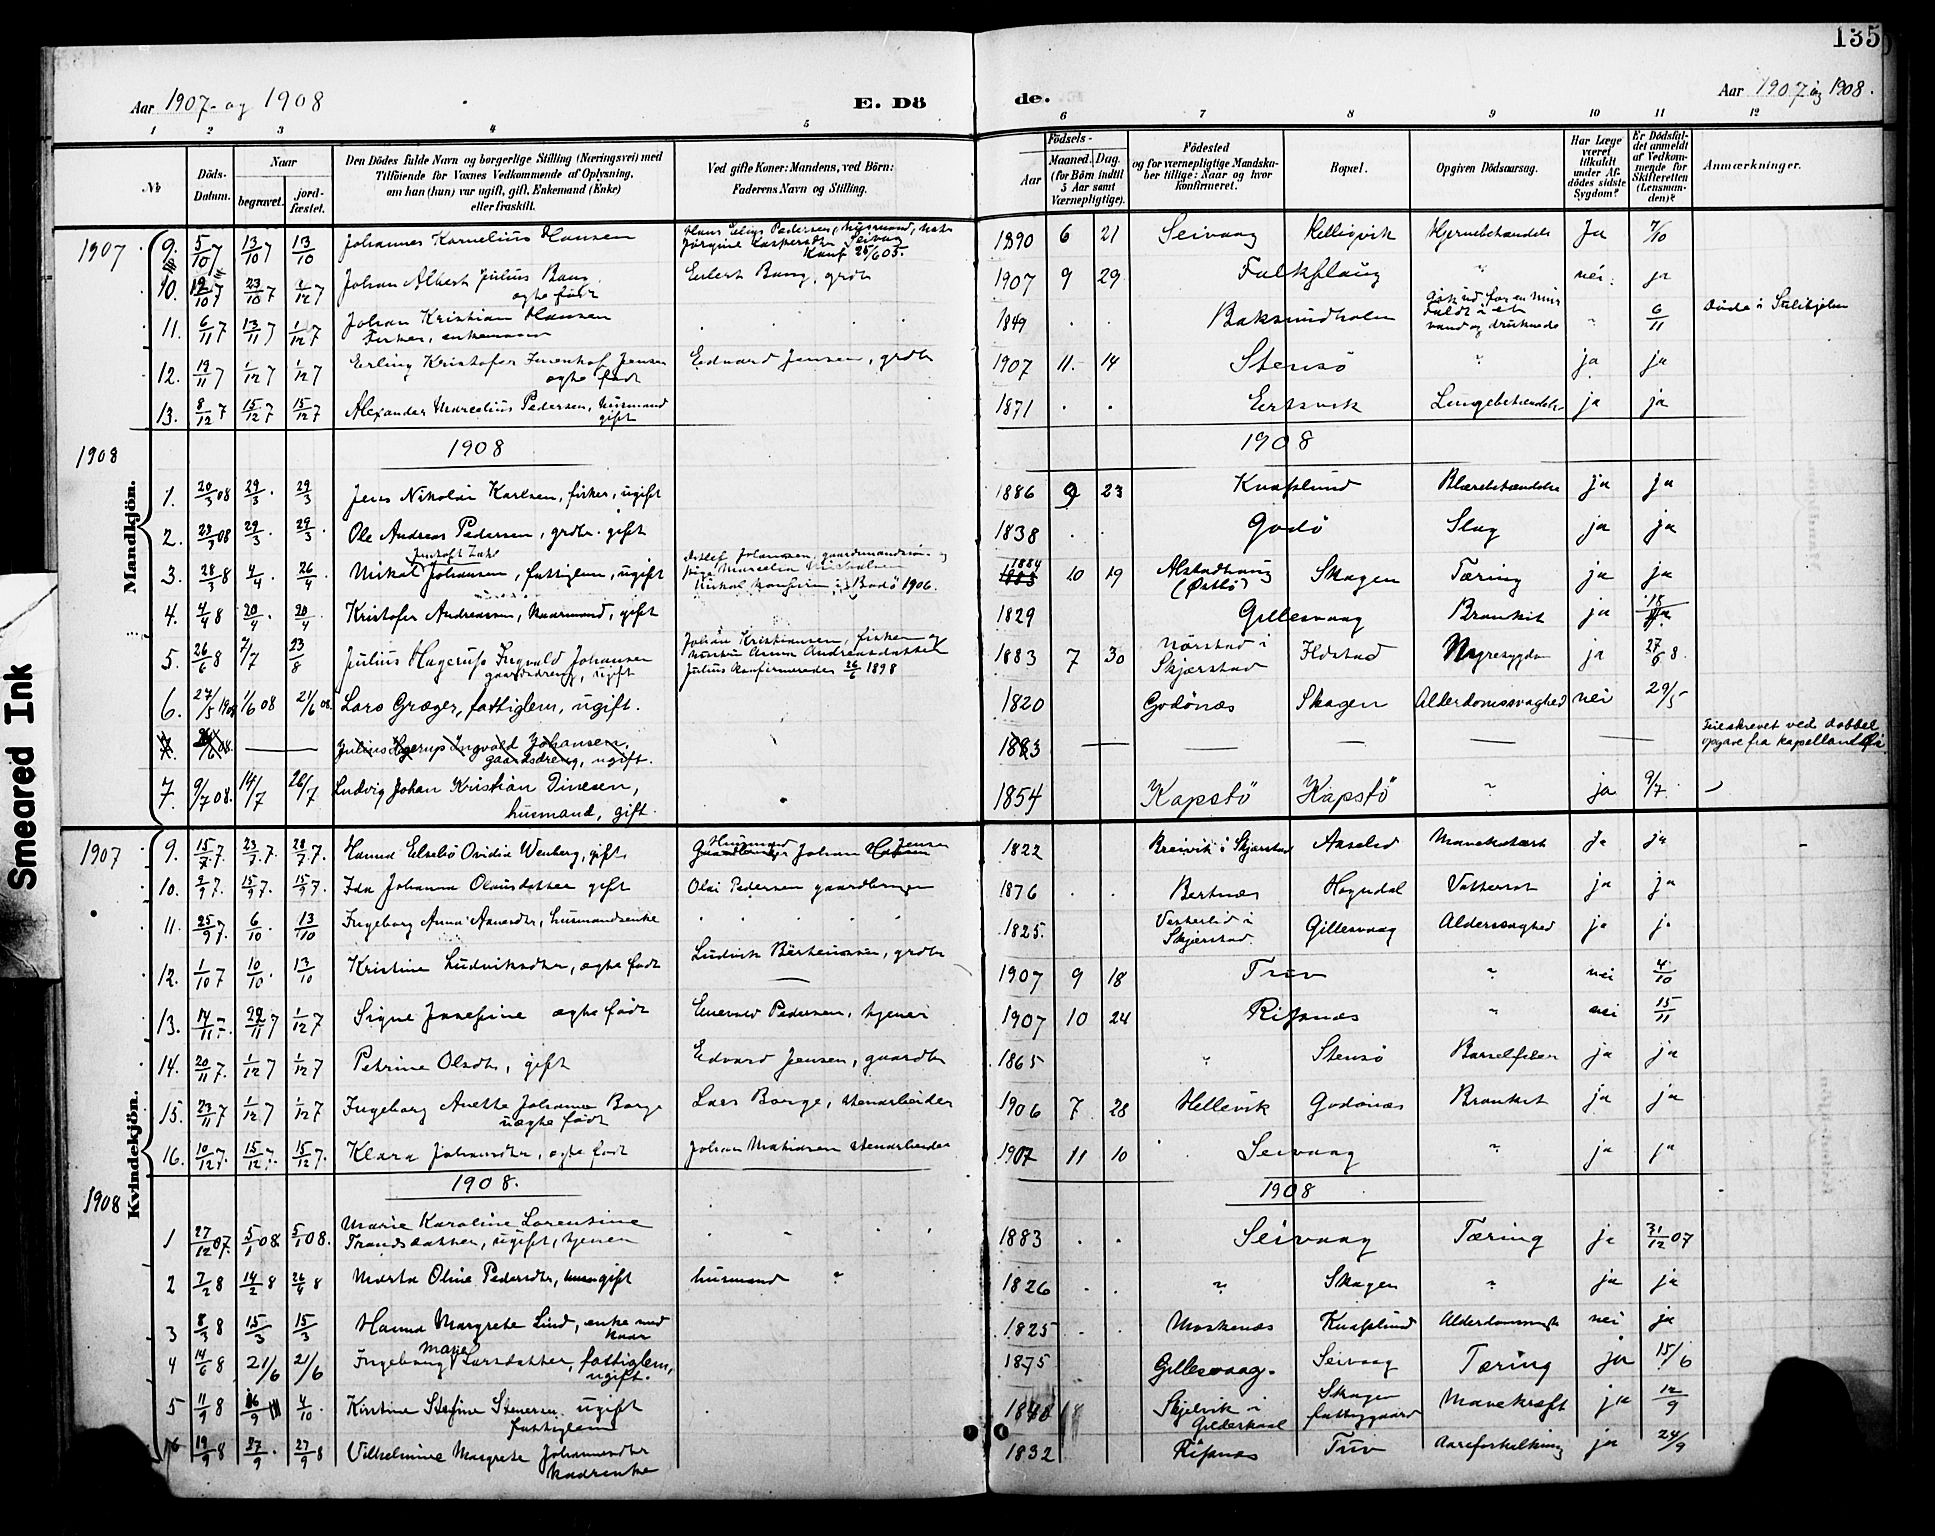 135
Aar 1907 og 1908
E. Döde.
Aar 1907 og 1908.
1 2 3 4 5 6 7 8 9 10 11 12
No
Döds-Datum.
Naar
begravet.
jordfæstet.
Den Dödes fulde Navn og borgerlige Stilling (Næringsvei) med
Tilföiende for Voxnes Vedkommende af Oplysning,
om han (hun) var ugift, gift, Enkemand (Enke)
eller fraskilt.
Ved gifte Koner: Mandens, ved Börn:
Faderens Navn og Stilling.
Födsels-
Aar
Maaned. Dag.
(for Börn indtil
5 Aar samt
Værnepligtige).
Födested
og for værnepligtige Mandska-
ber tillige: Naar og hvor
konfirmeret.
Bopæl.
Opgiven Dödsaarsag.
Har Læge
været
tilkaldt
under Af-
dödes sidste
Sygdom?
Er Dödsfal-
det anmeldt
af Vedkom-
mende for
Skifteretten
(Lensman-
den)?
Anmærkninger.
Mandkjön.
1907
9. 5/10 7 13/10 7 13/10 Johannes Kornelius Hansen 1890 6 21 Seivaag Kellvik Hjernebetændelse Ja 7/10
10. 19/10 7 23/10 7 1/12 7 Johan Albert Julius Bang ægte født Eilert Bang, grdbr 1907 9 29 Falkflaug " nei ja
11. 6/11 7 13/11 7 1/12 7 Johan Kristian Hansen Fisker, enkemand 1849 . . Baksundholm faldt i vand og druknede " 6/11
12. 19/11 7 1/12 7 1/12 7 Erling Kristofer Jensen ægte født Edvard Jensen, grdbr 1907 11. 14 Stensö " ja ja
13. 8/12 7 15/12 7 15/12 7 Alexander Marcelius Pedersen, husmand gift 1871 . . Eertsvik Lungebetændelse ja ja
1908
1908 1908
1. 20/3 08 29/3 29/3 Jens Nikolai Karlsen, fisker, ugift 1886 9 23 Knaplund Blærebetændelse ja ja
2. 23/3 08 29/3 29/3 Ole Andreas Pedersen, grdbr. gift 1838 . . Godö Slag ja ja
3. 28/3 8 4/4 26/4 Mikal Johansen, fattiglem, ugift Bodö 1906. 1884 10 19 Alstadhaug Skagen Tæring ja ja
4. 4/4 8 20/4 20/4 Kristofer Andreassen, Kaarmand, gift 1829 Gillesvaag Bronkit ja
5. 26/6 8 7/7 23/8 Julius Hagerup Ingvald Johansen gaardsdreng, ugift Johan Kristiansen, fisker og hustru Anna Andreasdatter Julius konfirmeredes 26/6 1898 1883 7 30 Nörstad i Skjerstad Ildstad Nyresygdom ja 27/6 8.
6. 27/5 1908 1/6 08 21/6 08. Lars Græger, fattiglem, ugift. 1820 Godönæs Skagen Alderdomssvaghed nei 29/5
7. 26/6 08. Julius Hagerup Ingvald Johansen, gaardsdreng, ugift. 1883 Feilskrevet ved dobbel opgave fra kapellanen
7. 9/7 08. 14/7 26/7 Ludvig Johan Kristian Dinesen, husmand, gift. 1854 Kapstö Kapstö " ja 9/7.
Kvindekjön.
1907
9. 15/7 7. 23/7 7. 28/7 7. Hanna Elsebö Ovidia Wenberg, gift Husmand Johan Jensen 1822 Breivik i Skjerstad Aaselid Mavekatarr Ja ja
10. 2/9 7. 15/9 7. 15/9 7. Ida Johanna Olausdatter gift Olai Pedersen gaardbruger 1876 . . Bertnæs Hogndal Vattersot ja ja
11. 25/9 7. 6/10 13/10 Ingeborg Anna husmandsenke 1825. Vesterlid i Skjerstad. Gillesvaag Alderssvaghed ja ja
12. 1/10 7 10/10 13/10 Kristine Ludviksdtr, ægte født Ludvik grdbr 1907 9 18 Tuv " nei 4/10
13. 14/11 7. 29/11 7 1/12 7 Signe Josefine ægte født Pedersen, tjener 1907 10 24 Ripnæs " nei 15/11
14. 20/11 7. 1/12 7 1/12 7 Petrine Olsdtr, gift Edvard Jensen, gaardbr 1865 " Stensö Barselfeber ja ja
15. 23/11 7 1/12 7 1/12 7 Ingeborg Anette Johanna Borge uægte født Lars Borge, stenarbeider 1906 7 28 Hellevik Godönæs Bronkit ja ja
16. 10/12 7. 15/12 7. 15/12 7. Klara Johansdtr, ægte født Johan Mathisen stenarbeider 1907 11 10 Seivaag " ja ja
1908
1908. 1908
1 27/12 07. 5/1 08. 5/1 08. Marie Karoline Lorentine Trondsdatter, ugift, tjener 1883 . . Seivaag Tæring ja 31/12 07
2 7/2 8 14/2 8 26/4 8 Marta Oline Pedersdtr, gift husmand " 1826 . . " Skagen " ja ja
3 8/3 8 15/3 15/3 Hanna Margrete Lind, enke med kaar 1825 . . Moskenæs Knaplund Alderdomssvagh nei ja
4 14/6 8 21/6 21/6 Ingeborg Marie Larsdatter, fattiglem, ugift. 1875 Gillesvaag. Seivaag Tæring ja 15/6
5 11/9 8 16/9 4/10 Kirstine Stefine Stenersen ugift fattiglem 1848 Skjelvik i Gilderkaal Skagen fattiggaard Mavekræft ja 12/9
6 19/9 8 27/9 27/9 8 Vilhelmine Margrete Johannesdtr kaarenke 1832 Ripnæs Tuv Aareforkalkning ja 24/9
Smeared Ink